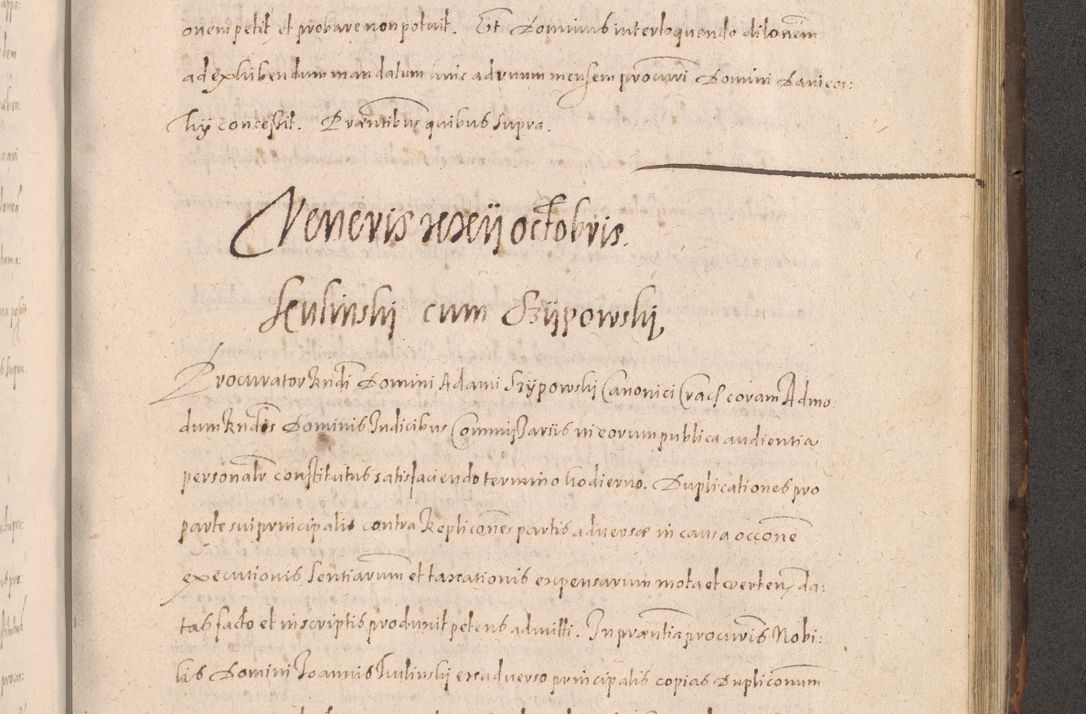 onem petit et probare non potuit. Et Dominus interloquendo dilonem
ad exhibendum mandatum huic ad unum mensem procuri Domini Danieor:
hÿ concessit. Präntibus quibus supra.
Veneris xxvii octobris.
Kulinskÿ cum Szÿpowskÿ
Procurator Rndi Domini Adami Szÿpowskÿ Canonici Crac. coram Admo
dum Rndis Dominis Judicibus Commissariis in eorum publica audientia
personalr constitutus satisfaciendo termino hodierno. Duplicationes pro
parte sui principalis contra Repliconès partis adversæ in causa occone
executionis sentiarum et taxationis expensarum mota et verten, da:
tas facto et in scriptis produxit petens admitti. In präntia procuris Nobi:
lis Domini Joannis Kulinskÿ ex adverso principalis copias Dupliconum